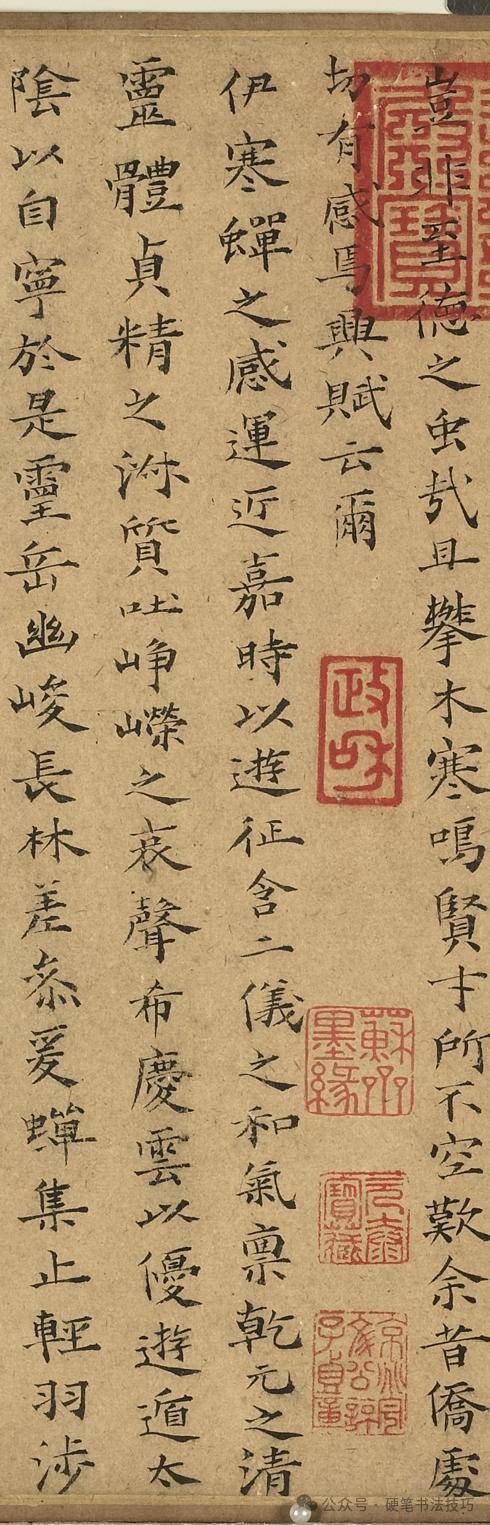 豈非至德之虫哉且攀木寒鳴賢才所不空歎余昔僑處
切有感焉興賦云爾
伊寒蟬之感運近嘉時以遊征含二儀之和氣禀乾元之清
靈體貞精之淑質吐崢嶸之哀聲希慶雲以優遊遁太
陰以自寧於是靈岳幽峻長林差叅爰蟬集止輕羽涉
政和
公众号·硬笔书法技巧